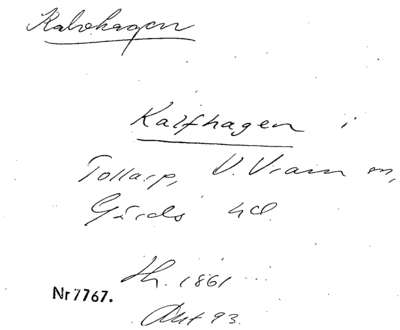 Kalvhagen
Kalfhagen i
Tollarp, V. Vram sn,
Gärds hd.
Hh. 1861
Akt 93.
Nr 7767.